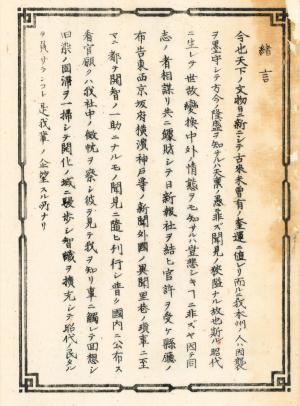 緒言
今也天下ノ文物日ニ新ニシテ古来未曽有ノ奎運ニ値レリ而ルニ我本州ノ人ハ因襲
ヲ墨守シテ方今ノ隆盛ヲ知サルハ天稟ノ愚ニ非ズ聞見ノ狹隘ナル故也斯ル昭代
ニ生レテ世故変換中外ノ情態ヲモ知サルハ豈慙シキニ非ズヤ因テ同
志ノ者相謀リ共ニ醵財シテ日新報社ヲ結ヒ官許ヲ受ケ縣廳ノ
布告東西京坂府横濱神戸等ノ新聞外國ノ異聞里巷ノ瑣事ニ至
マテ都テ開智ノ一助ニナルモノ聞見ニ隨ヒ刊行シ普ク國内ニ公布ス
看官願クハ我社中ノ微忱ヲ察シ彼ヲ見テ我ヲ知リ事ニ觸レテ回想シ
旧染ノ固滞ヲ一掃シテ開化ノ域ニ駸歩シ智識ヲ擴充シテ昭代ノ民タル
ヲ負サランコレ是我輩ノ企望スル所ナリ